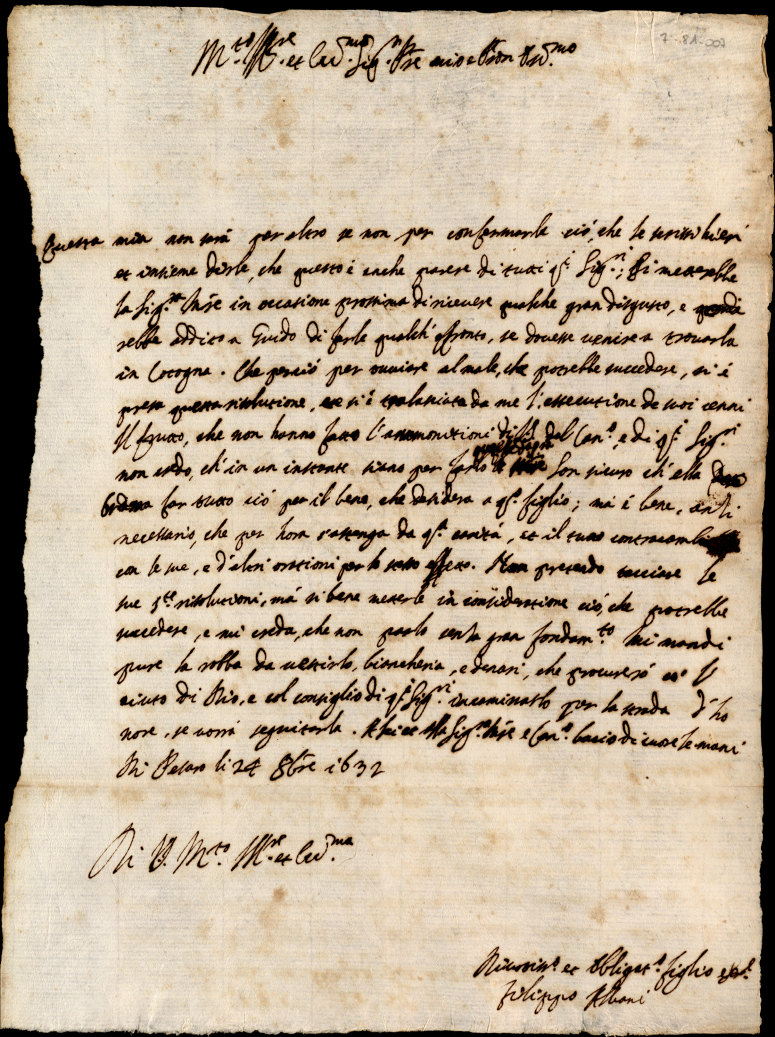 7-81-002
M.to Ill.re et Ecc.mo Sig.r P.re mio e Pron Oss.mo
Questa mia non sarà per altro se non per confermarle ciò, che le scrissi hieri
et insieme dirle, che questo è anche parere di tutti q.ti Sig.ri; Si metterebbe
la Sig.ra M.re in occasione prossima di ricevere qualche gran disgusto, e
rebbe addito a Guido di farle qualch' affronto, se dovesse venire a trovarla
in Cotogna. Che perciò per ovviare al male, che potrebbe succedere, si è
presa questa risolutione, et si è tralasciata da me l'essecutione de suoi cenni
Il frutto, che non hanno fatto l'ammonitioni di del Can.co, e di q.ti Sig.ri
non credo, ch'in un instante siano per farlo Son sicuro ch'ella
brama far tutto ciò per il bene, che desidera a q.to figlio; ma è bene, anzi
necessario, che per hora s'astenga da q.ta carità, et il tutto
con le sue, e d'altri orationi per lo stesso effetto. Non pretendo tacciare le
sue s.te risolutioni, mà si bene metterle in consideratione ciò, che potrebbe
succedere, e mi creda, che non parlo senza gran fondam.to Mi mandi
pure la robba da vestirlo, biancheria, e denari, che procurerò co' l'
aiuto di Dio, e col consiglio di q.ti Sig.ri incaminarlo per la strada d'ho
nore, se vorrà seguitarla. A lei et alla Sig.ra M.re e Can.co bacio di cuore le mani
Di Pesaro li 24 8bre 1632
Di V. M.to Ill.re et Ecc.ma
Divotiss.o et Obligat.o figlio e
Filippo Albani